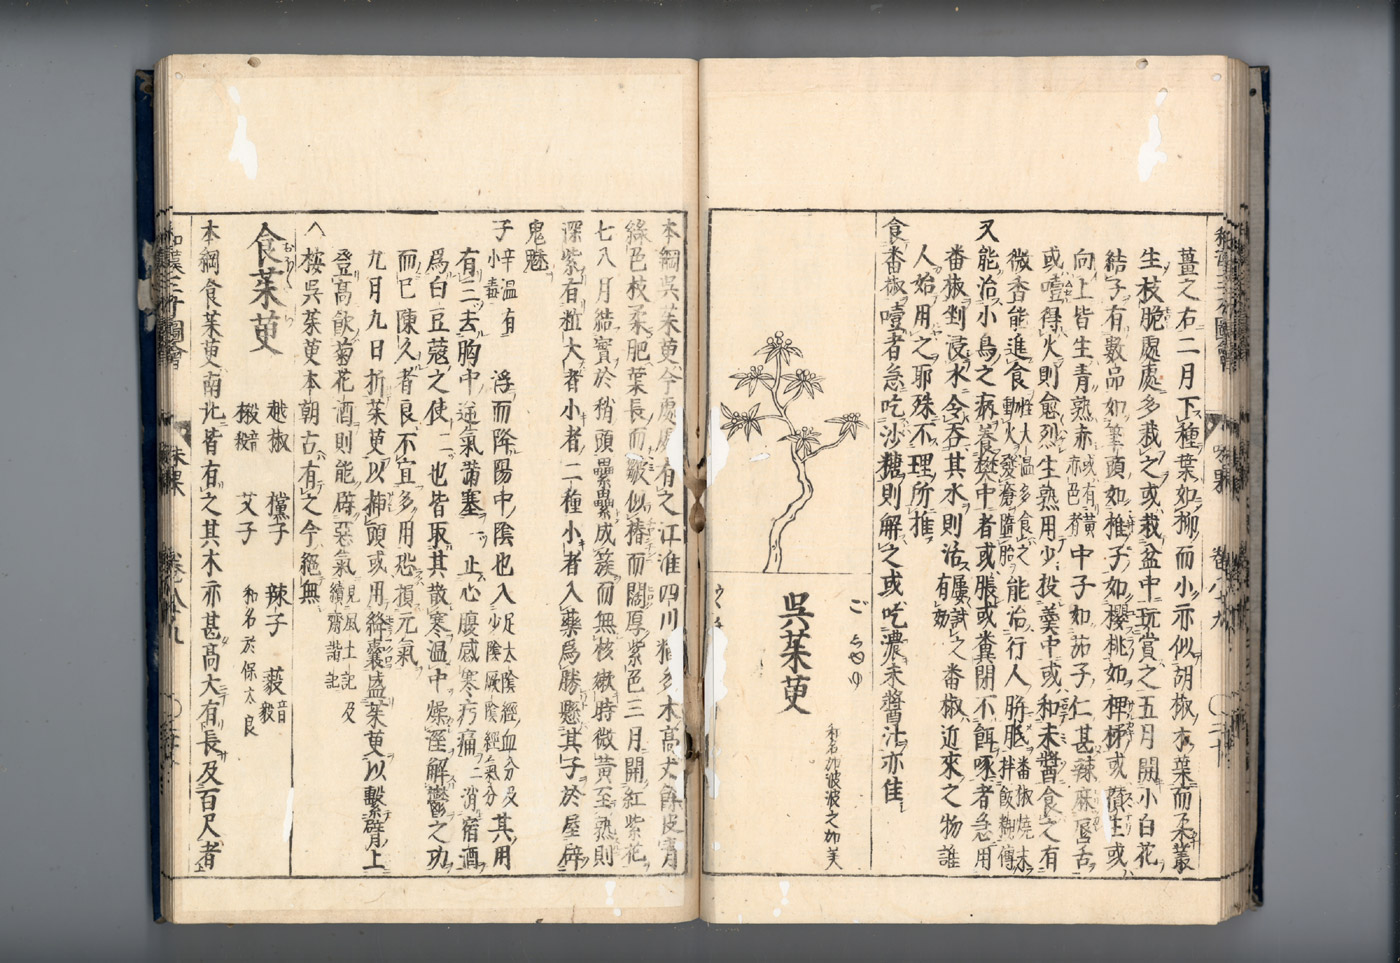 薑之右二月下種葉如柳而小亦似胡椒木葉而柔叢
生枝脆處處多栽之或栽盆中玩賞之五月開小白花
結子有數品如筆頭如椎子如櫻桃如椑柹或攅生或
向上皆生青熟赤或有黃赤色者中子如茄子仁甚辣麻唇舌
或噎得火則愈烈生熟用少投羹中或和未醬食之有
微香能進食性大溫多食之動火發瘡墮胎能治行人䏶胝番椒燒末拌飯糊傅
又能治小鳥之病養樊中者或脹或糞閉不餌啄者急用
番椒剉浸水令吞其水則活屢試之有効番椒近來之物誰
人始用之耶殊不理所推
食番椒噎者急吃沙糖則解之或吃濃未醬汁亦佳
ごしゆゆ
吳茱萸
和名加波波之加美
本綱吳茱萸今處處有之江淮四川猶多木高丈餘皮青
綠色枝柔肥葉長而皺似椿而闊厚紫色三月開紅紫花
七八月結實於稍頭纍纍成簇而無核嫩時微黃至熟則
深紫有粒大者小者二種小者入藥爲勝懸其子於屋辟
鬼魅
子辛溫有小毒 浮而降陽中陰也入足太陰經血分及少陰厥陰經氣分其用
有三去胸中逆氣滿塞一止心腹感寒㽲痛二消宿酒
爲白豆蔻之使二也皆取其散寒溫中燥溼解鬱之功
而已陳久者良不宜多用恐損元氣
九月九日折茱萸以揷頭或用絳囊盛茱萸以繫臂上
登高飮菊花酒則能辟惡氣見風土記及續齊諧記
△按吳茱萸本朝古有之今絕無
食茱萸
越椒 欓子 辣子 藙音毅
樧音殺 艾子 和名於保太良
本綱食茱萸南北皆有之其木亦甚高大有長及百尺者
和漢三才圖會